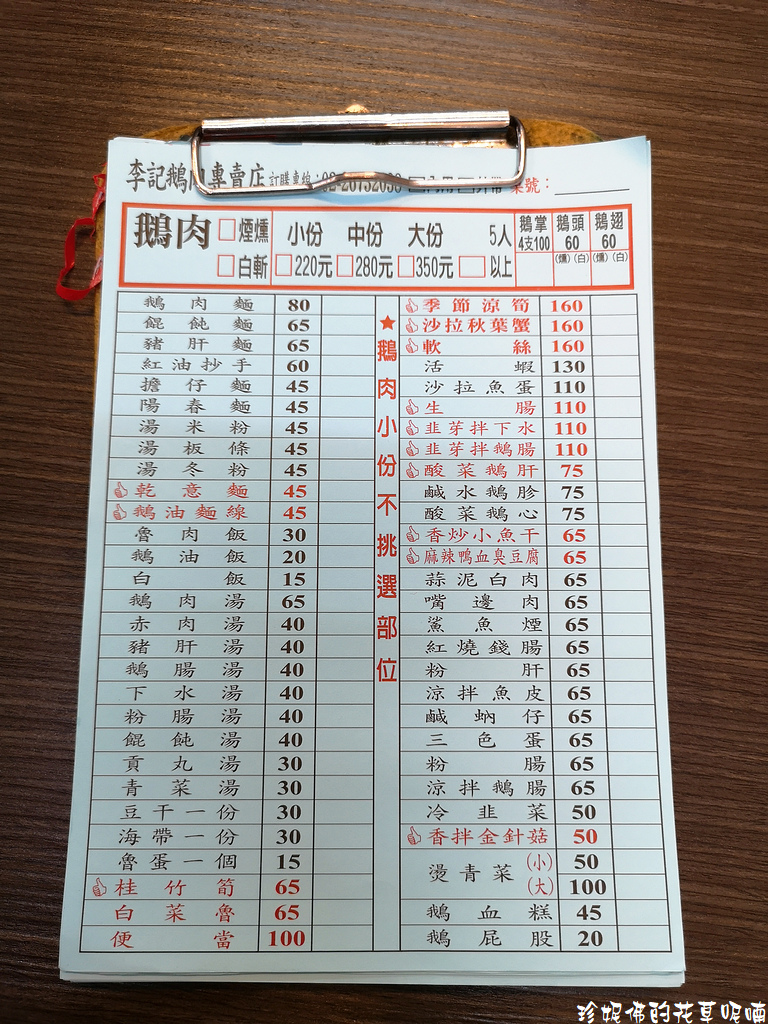 李記鵝肉專賣店 訂購專線: 桌號:
鵝肉 □煙燻 □白斬
小份 中份 大份 5人
□220元 □280元 □350元 □以上
鵝掌 4支100
鵝頭 60 (燻)(白)
鵝翅 60 (燻)(白)
鵝肉麵 80
餛飩麵 65
豬肝麵 65
紅油抄手 60
擔仔麵 45
陽春麵 45
湯米粉 45
湯板條 45
湯冬粉 45
乾意麵 45
鵝油麵線 45
魯肉飯 30
鵝油飯 20
白飯 15
鵝肉湯 65
赤肉湯 40
豬肝湯 40
鵝腸湯 40
下水湯 40
粉腸湯 40
餛飩湯 40
貢丸湯 30
青菜湯 30
豆干一份 30
海帶一份 30
魯蛋一個 15
桂竹筍 65
白菜魯 65
便當 100
★鵝肉小份不挑選部位
季節涼筍 160
沙拉秋葉蟹 160
軟絲 160
活蝦 130
沙拉魚蛋 110
生腸 110
韭芽拌下水 110
韭芽拌鵝腸 110
酸菜鵝肝 75
鹹水鵝胗 75
酸菜鵝心 75
香炒小魚干 65
麻辣鴨血臭豆腐 65
蒜泥白肉 65
嘴邊肉 65
鯊魚煙 65
紅燒錢腸 65
粉肝 65
涼拌魚皮 65
鹹蚋仔 65
三色蛋 65
粉腸 65
涼拌鵝腸 65
冷韭菜 50
香拌金針菇 50
燙青菜 (小) 50
(大) 100
鵝血糕 45
鵝屁股 20
珍妮佛的花草呢喃